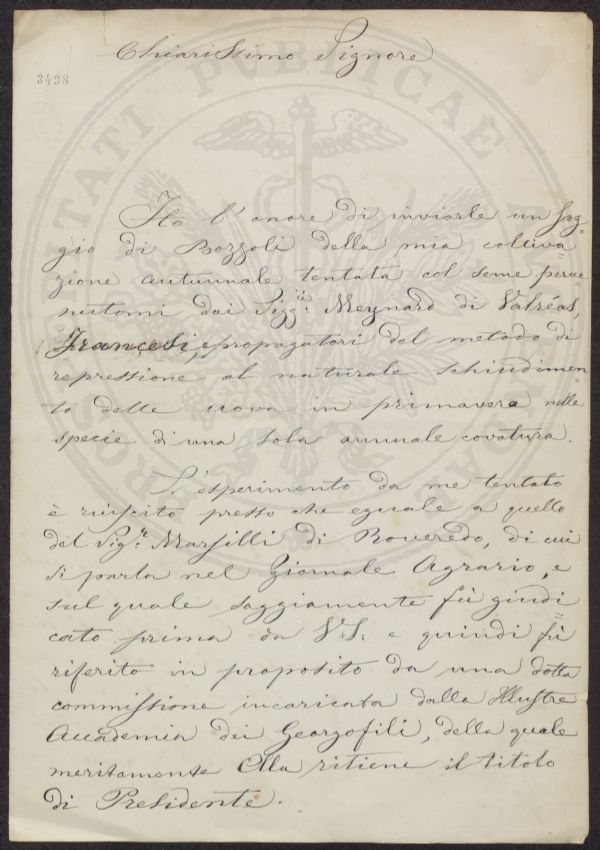 Chiarissimo Signore
3498
Ho l'onore di inviarle un sag=
gio di Bozzoli della mia coltiva=
zione autunnale tentata col seme perve=
nutomi dai Sigg:ri Meynard di Valréas,
Francesi, e propagatori del metodo di
repressione al naturale schiudimen
to delle uova in primavera nelle
specie di una sola annuale covatura.
L'esperimento da me tentato
è riuscito presso che eguale a quello
del Sig:r Marsilli di Roveredo, di cui
si parla nel Giornale Agrario, e
sul quale saggiamente fù giudi=
cato prima da V.S: e quindi fù
riferito in proposito da una dotta
commissione incaricata dalla Illustre
Accademia dei Georgofili, della quale
meritamente Ella ritiene il titolo
di Presidente.
PUBLICAE